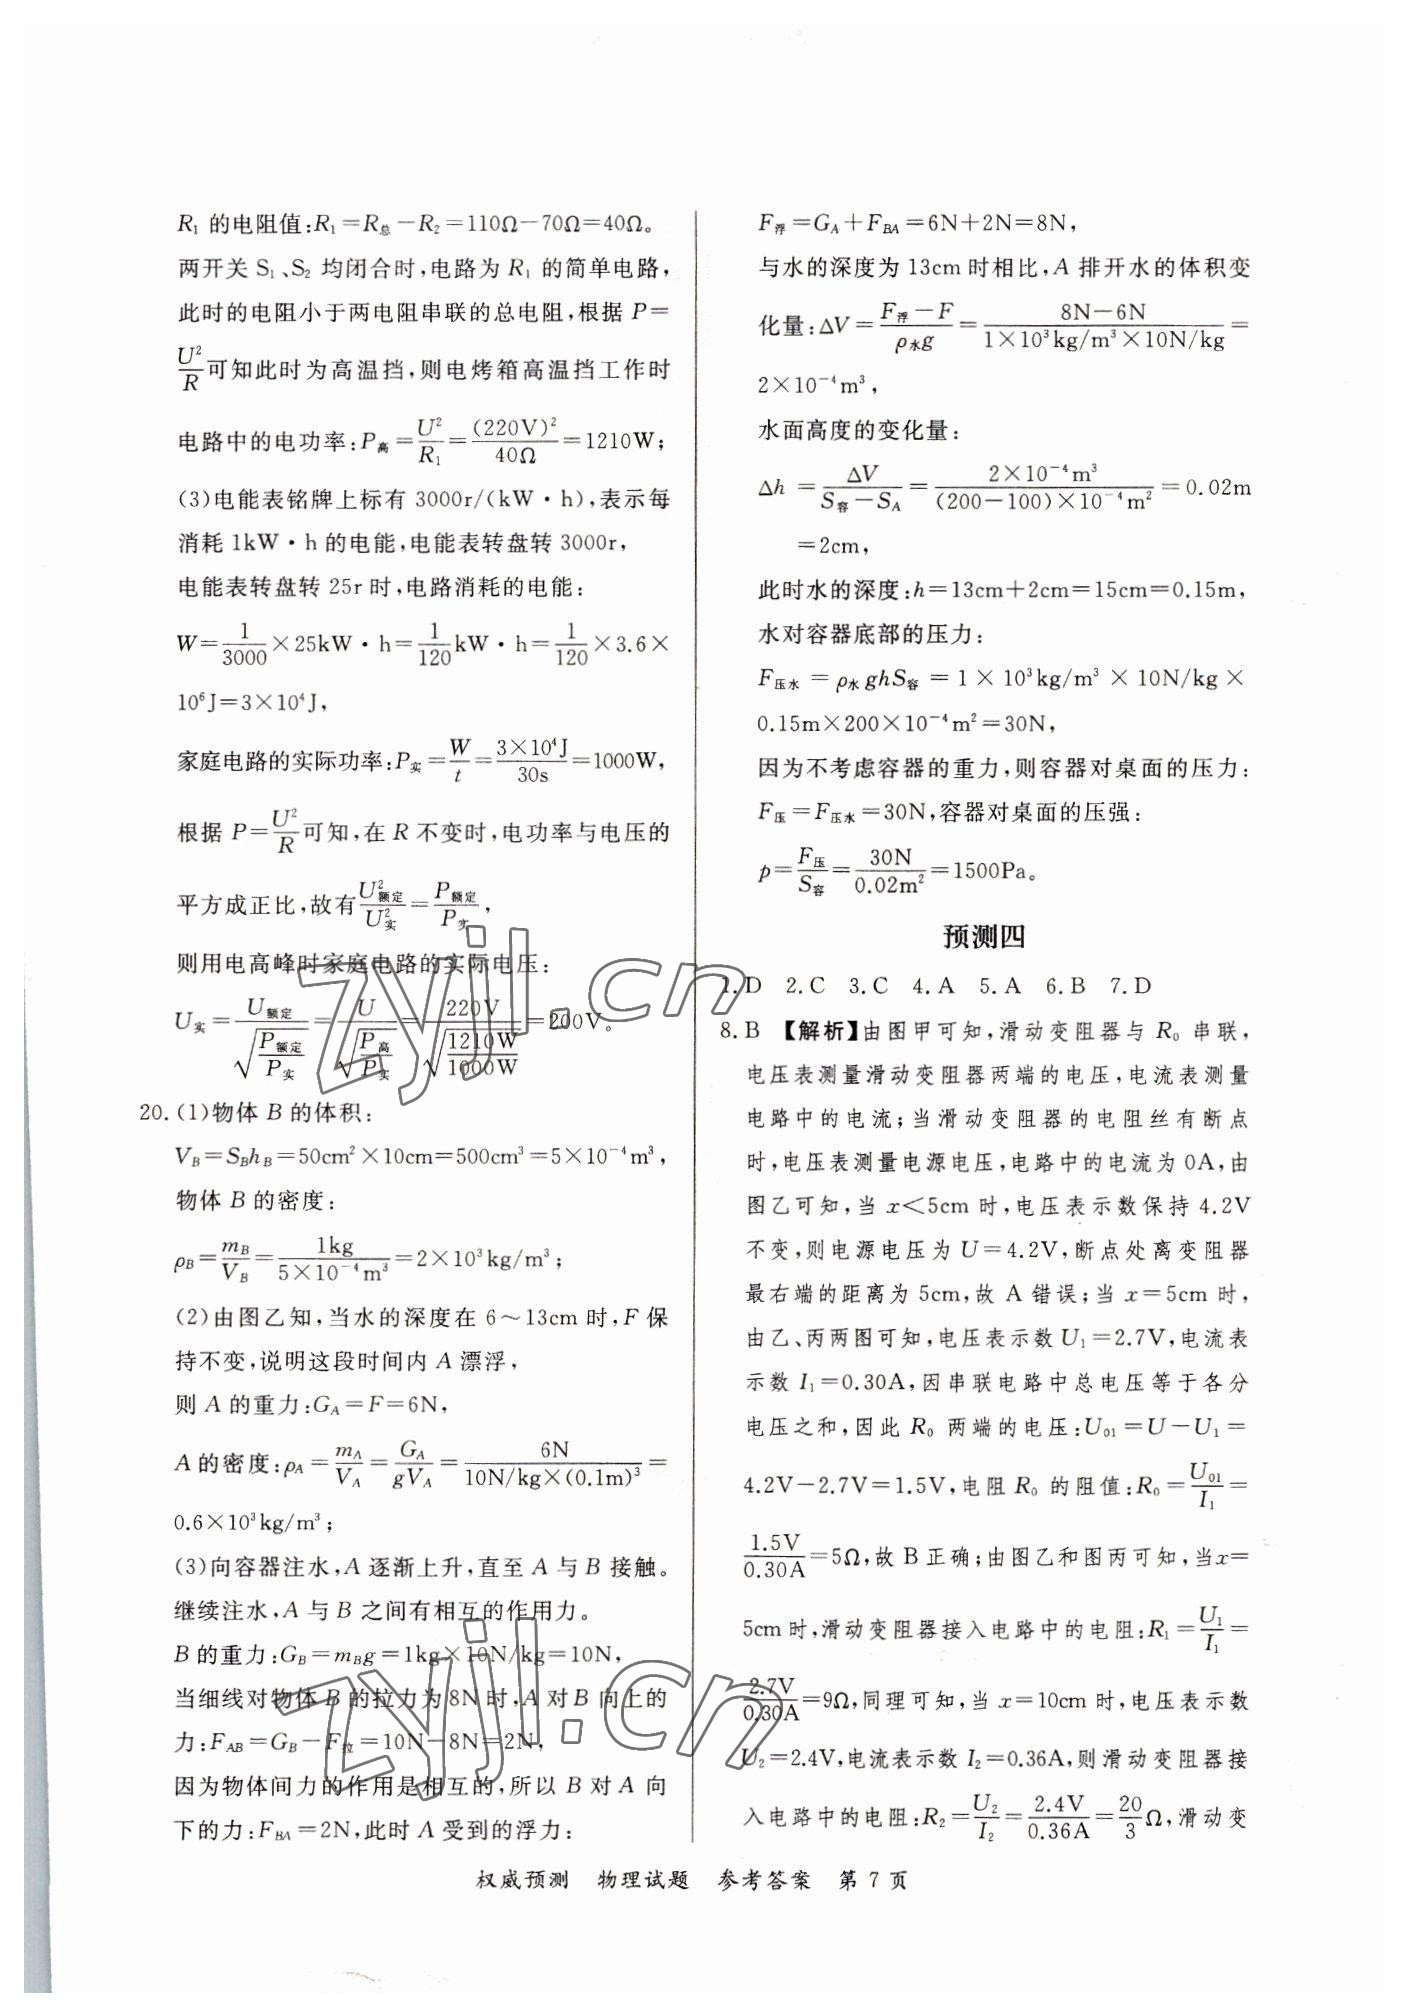 R₁ 的电阻值:R₁=R总-R₂=110Ω-70Ω=40Ω。
两开关 S₁、S₂ 均闭合时,电路为 R₁ 的简单电路,
此时的电阻小于两电阻串联的总电阻,根据 P=
U²/R 可知此时为高温挡,则电烤箱高温挡工作时
电路中的电功率:P高=U²/R₁=(220V)²/40Ω=1210W;
(3)电能表铭牌上标有 3000r/(kW·h),表示每
消耗 1kW·h 的电能,电能表转盘转 3000r,
电能表转盘转 25r 时,电路消耗的电能:
W=1/3000×25kW·h=1/120kW·h=1/120×3.6×
10⁶J=3×10⁴J,
家庭电路的实际功率:P实=W/t=3×10⁴J/30s=1000W,
根据 P=U²/R 可知,在 R 不变时,电功率与电压的
平方成正比,故有 U²额定/U²实=P额定/P实,
则用电高峰时家庭电路的实际电压:
U实=U额定/√(P额定/P实)=U/√(P高/P实)=220V/√(1210W/1000W)=200V。
20.(1)物体 B 的体积:
V_B=S_Bh_B=50cm²×10cm=500cm³=5×10⁻⁴m³,
物体 B 的密度:
ρ_B=m_B/V_B=1kg/(5×10⁻⁴m³)=2×10³kg/m³;
(2)由图乙知,当水的深度在 6~13cm 时,F 保
持不变,说明这段时间内 A 漂浮,
则 A 的重力:G_A=F=6N,
A 的密度:ρ_A=m_A/V_A=G_A/(gV_A)=6N/(10N/kg×(0.1m)³)=
0.6×10³kg/m³;
(3)向容器注水,A 逐渐上升,直至 A 与 B 接触。
继续注水,A 与 B 之间有相互的作用力。
B 的重力:G_B=m_Bg=1kg×10N/kg=10N,
当细线对物体 B 的拉力为 8N 时,A 对 B 向上的
力:F_AB=G_B-F拉=10N-8N=2N,
因为物体间力的作用是相互的,所以 B 对 A 向
下的力:F_BA=2N,此时 A 受到的浮力:
F浮=G_A+F_BA=6N+2N=8N,
与水的深度为 13cm 时相比,A 排开水的体积变
化量:ΔV=(F浮-F)/(ρ水g)=(8N-6N)/(1×10³kg/m³×10N/kg)=
2×10⁻⁴m³,
水面高度的变化量:
Δh=ΔV/(S容-S_A)=2×10⁻⁴m³/((200-100)×10⁻⁴m²)=0.02m
=2cm,
此时水的深度:h=13cm+2cm=15cm=0.15m,
水对容器底部的压力:
F压水=ρ水ghS容=1×10³kg/m³×10N/kg×
0.15m×200×10⁻⁴m²=30N,
因为不考虑容器的重力,则容器对桌面的压力:
F压=F压水=30N,容器对桌面的压强:
p=F压/S容=30N/0.02m²=1500Pa。
预测四
1.D 2.C 3.C 4.A 5.A 6.B 7.D
8.B 【解析】由图甲可知,滑动变阻器与 R₀ 串联,
电压表测量滑动变阻器两端的电压,电流表测量
电路中的电流;当滑动变阻器的电阻丝有断点
时,电压表测量电源电压,电路中的电流为 0A,由
图乙可知,当 x<5cm 时,电压表示数保持 4.2V
不变,则电源电压为 U=4.2V,断点处离变阻器
最右端的距离为 5cm,故 A 错误;当 x=5cm 时,
由乙、丙两图可知,电压表示数 U₁=2.7V,电流表
示数 I₁=0.30A,因串联电路中总电压等于各分
电压之和,因此 R₀ 两端的电压:U₀₁=U-U₁=
4.2V-2.7V=1.5V,电阻 R₀ 的阻值:R₀=U₀₁/I₁=
1.5V/0.30A=5Ω,故 B 正确;由图乙和图丙可知,当 x=
5cm 时,滑动变阻器接入电路中的电阻:R₁=U₁/I₁=
2.7V/0.30A=9Ω,同理可知,当 x=10cm 时,电压表示数
U₂=2.4V,电流表示数 I₂=0.36A,则滑动变阻器接
入电路中的电阻:R₂=U₂/I₂=2.4V/0.36A=20/3Ω,滑动变
权威预测 物理试题 参考答案 第 7 页
zyjl.cn
zyjl.cn